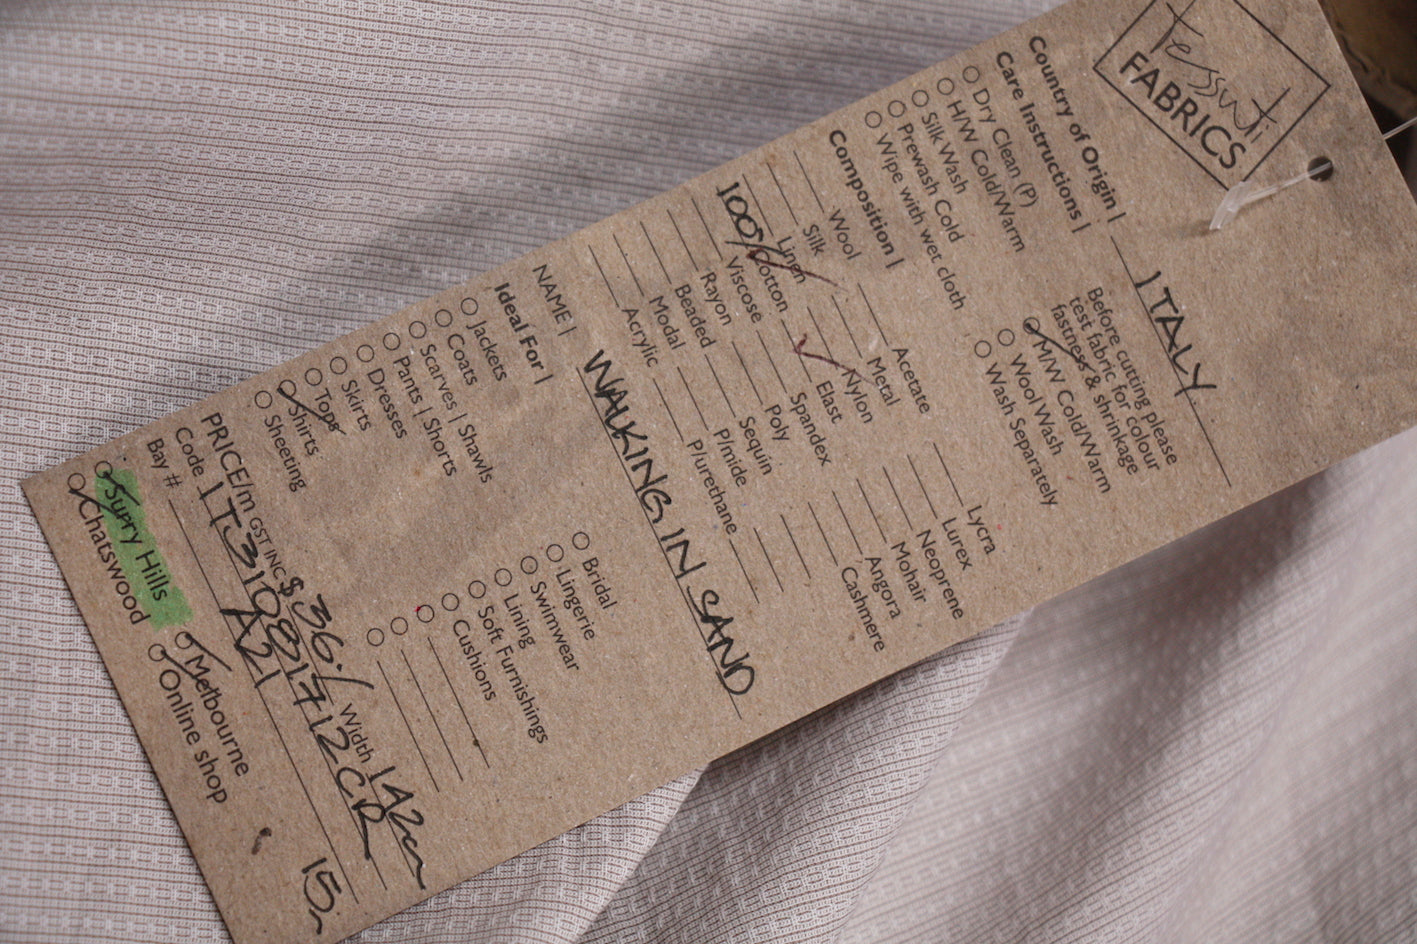 Tessuti
FABRICS
Country of Origin | ITALY
Care Instructions |
Before cutting please
test fabric for colour
fastness & shrinkage
Dry Clean (P)
H/W Cold/Warm
Silk Wash
Prewash Cold
Wipe with wet cloth
M/W Cold/Warm
Wool Wash
Wash Separately
Composition |
Wool
Silk
Linen
100% Cotton
Viscose
Rayon
Beaded
Modal
Acrylic
Acetate
Metal
Nylon
Elast
Spandex
Poly
Sequin
P/mide
P/urethane
Lycra
Lurex
Neoprene
Mohair
Angora
Cashmere
NAME | WALKING IN SAND
Ideal For |
Jackets
Coats
Scarves | Shawls
Pants | Shorts
Dresses
Skirts
Tops
Shirts
Sheeting
Bridal
Lingerie
Swimwear
Lining
Soft Furnishings
Cushions
PRICE/m GST INC $36/ Width 142cm
Code ITJ31081712CR
Bay # A21
Surry Hills
Chatswood
Melbourne
Online shop
15